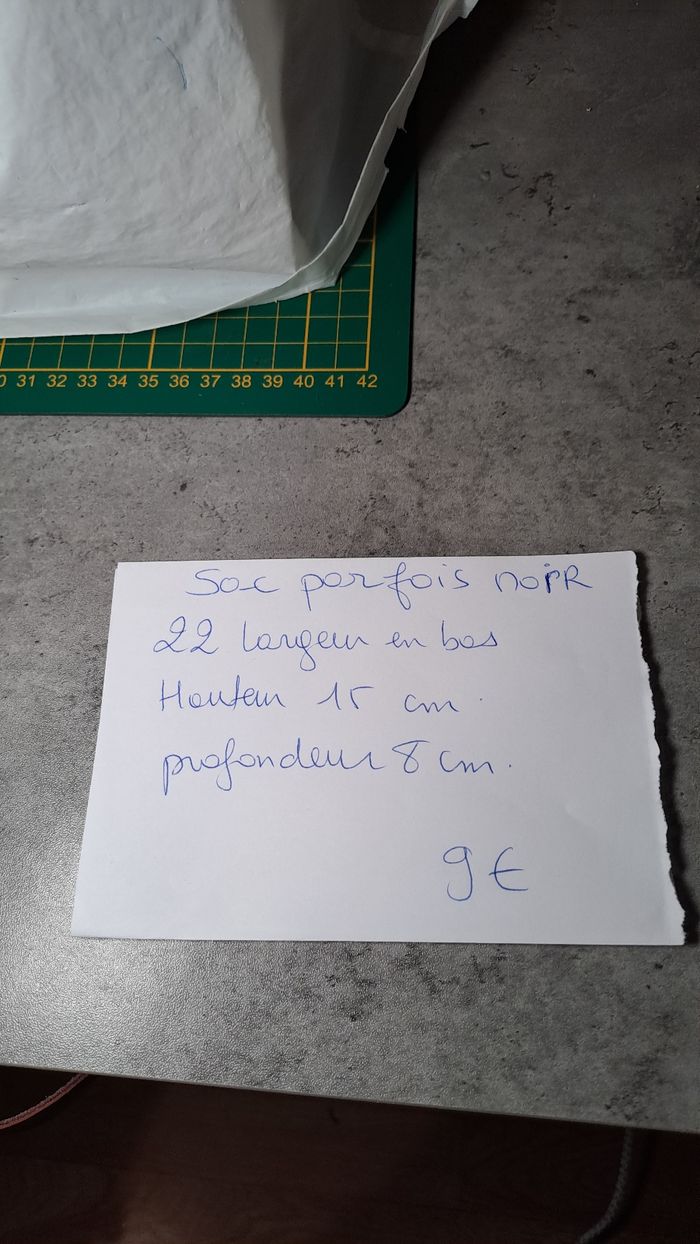 0 31 32 33 34 35 36 37 38 39 40 41 42
Sac parfois noiR
22 largeur en bas
Hauteur 15 cm.
profondeur 8 cm.
9 €